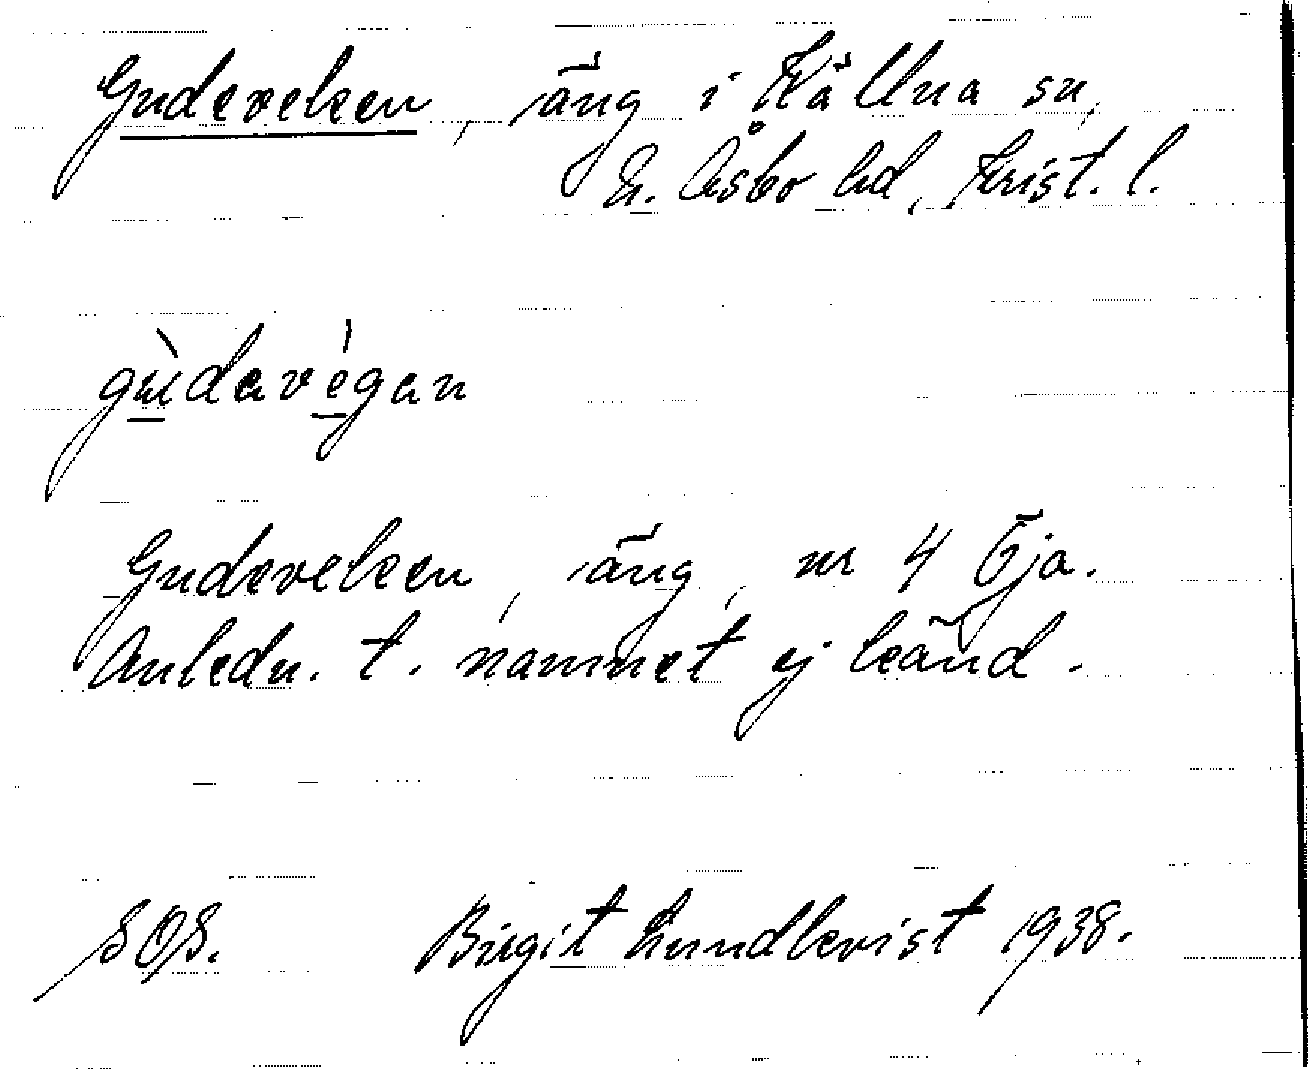 Gudeveken, äng i Källna sn,
N. Åsbo hd, Krist. l.
gùdavégan
Gudeveken, äng, nr 4 Öja.
Anledn. t. namnet ej känd.
SOS. Birgit Lundkvist 1938.